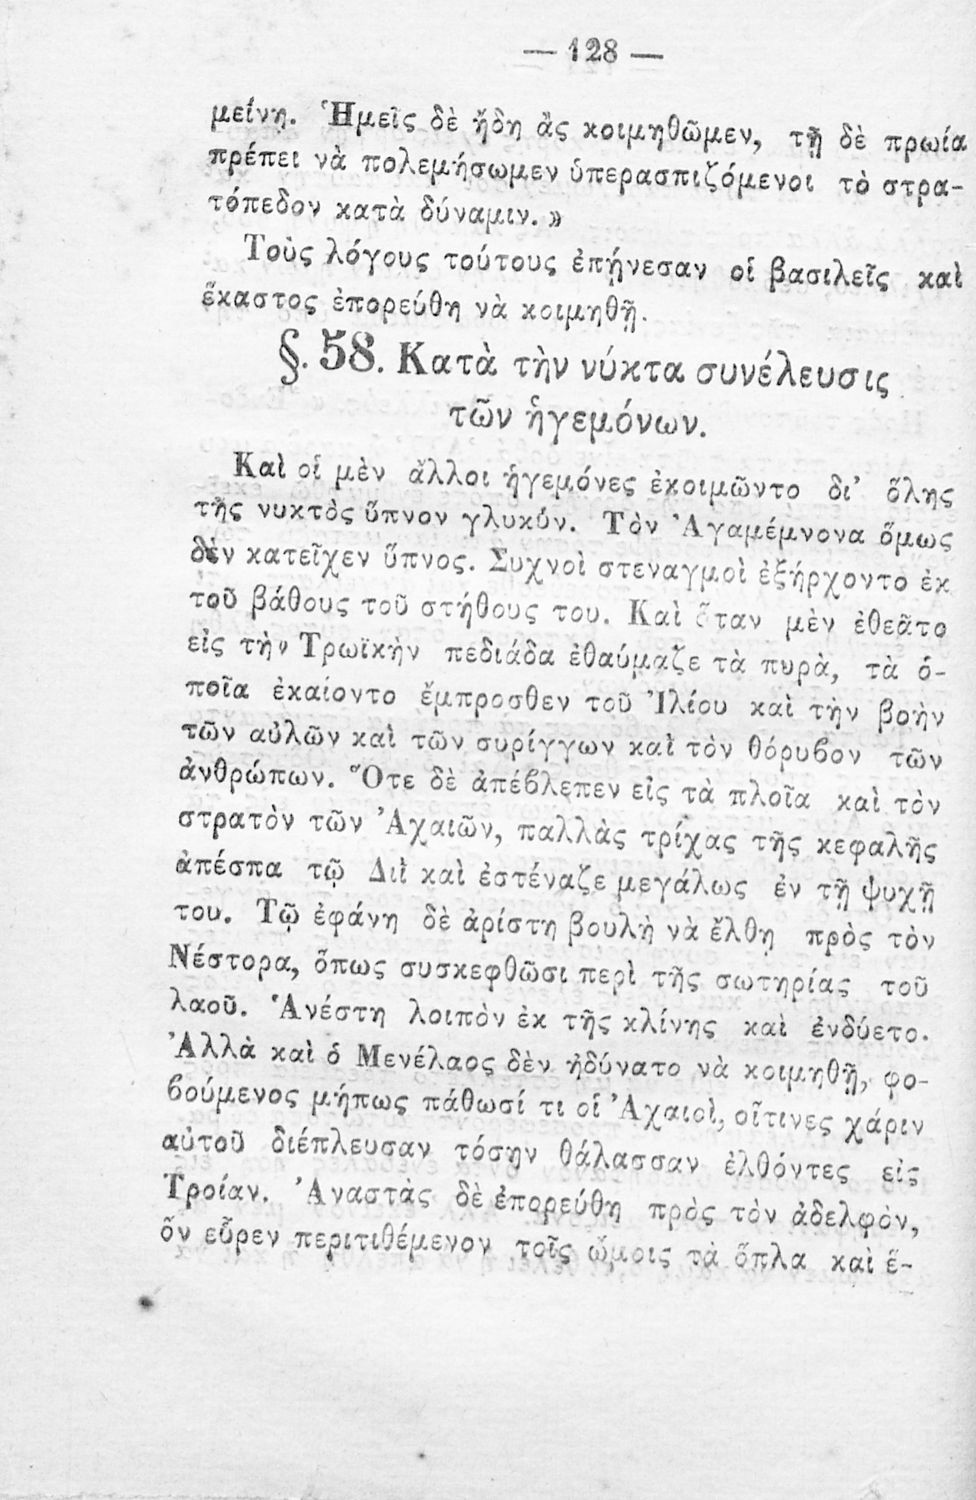 — 128 —
μείνῃ. Ἡμεῖς δὲ ἤδη ἂς κοιμηθῶμεν, τῇ δὲ πρωίᾳ
πρέπει νὰ πολεμήσωμεν ὑπερασπιζόμενοι τὸ στρα-
τόπεδον κατὰ δύναμιν. »
Τοὺς λόγους τούτους ἐπῄνεσαν οἱ βασιλεῖς καὶ
ἕκαστος ἐπορεύθη νὰ κοιμηθῇ.
§. 58. Κατὰ τὴν νύκτα συνέλευσις
τῶν ἡγεμόνων.
Καὶ οἱ μὲν ἄλλοι ἡγεμόνες ἐκοιμῶντο δι’ ὅλης
τῆς νυκτὸς ὕπνον γλυκύν. Τὸν Ἀγαμέμνονα ὅμως
δὲν κατεῖχεν ὕπνος. Συχνοὶ στεναγμοὶ ἐξήρχοντο ἐκ
τοῦ βάθους τοῦ στήθους του. Καὶ ὅταν μὲν ἐθεᾶτο
εἰς τὴν Τρωϊκὴν πεδιάδα ἐθαύμαζε τὰ πυρὰ, τὰ ὁ-
ποῖα ἐκαίοντο ἔμπροσθεν τοῦ Ἰλίου καὶ τὴν βοὴν
τῶν αὐλῶν καὶ τῶν συρίγγων καὶ τὸν θόρυβον τῶν
ἀνθρώπων. Ὅτε δὲ ἀπέβλεπεν εἰς τὰ πλοῖα καὶ τὸν
στρατὸν τῶν Ἀχαιῶν, παλλὰς τρίχας τῆς κεφαλῆς
ἀπέσπα τῷ Διῒ καὶ ἐστέναζε μεγάλως ἐν τῇ ψυχῇ
του. Τῷ ἐφάνη δὲ ἀρίστη βουλὴ νὰ ἔλθῃ πρὸς τὸν
Νέστορα, ὅπως συσκεφθῶσι περὶ τῆς σωτηρίας τοῦ
λαοῦ. Ἀνέστη λοιπὸν ἐκ τῆς κλίνης καὶ ἐνδύετο.
Ἀλλὰ καὶ ὁ Μενέλαος δὲν ἠδύνατο νὰ κοιμηθῇ, φο-
βούμενος μήπως πάθωσί τι οἱ Ἀχαιοὶ, οἵτινες χάριν
αὐτοῦ διέπλευσαν τόσην θάλασσαν ἐλθόντες εἰς
Τροίαν. Ἀναστὰς δὲ ἐπορεύθη πρὸς τὸν ἀδελφὸν,
ὃν εὗρεν περιτιθέμενον τοῖς ὤμοις τὰ ὅπλα καὶ ἔ-